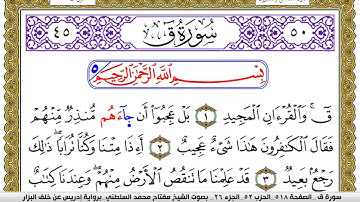 ٥٠ سُورَةُ قٓ ٤٥
بِسْمِ اللَّهِ الرَّحْمَٰنِ الرَّحِيمِ
قٓۚ وَالْقُرْءَانِ الْمَجِيدِ ١ بَلْ عَجِبُوٓا۟ أَن جَآءَهُم مُّنذِرٌ مِّنْهُمْ
فَقَالَ الْكَٰفِرُونَ هَٰذَا شَىْءٌ عَجِيبٌ ٢ أَءِذَا مِتْنَا وَكُنَّا تُرَابًاۖ ذَٰلِكَ
رَجْعٌۢ بَعِيدٌ ٣ قَدْ عَلِمْنَا مَا تَنقُصُ الْأَرْضُ مِنْهُمْۖ وَعِندَنَا كِتَٰبٌ
سورة ق الصفحة ٥١٨ الحزب ٥٢ الجزء ٢٦ بصوت الشيخ مفتاح محمد السلطني برواية إدريس عن خلف البزار